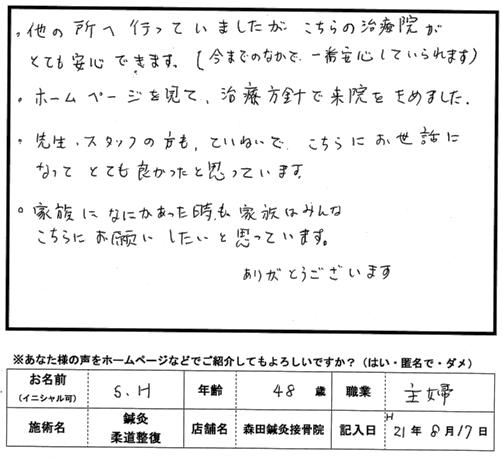 ・他の所へ行っていましたが こちらの治療院が
とても安心できます。(今までのなかで、一番安心していられます)
・ホームページを見て、治療方針で来院をきめました。
・先生、スタッフの方も、ていねいで、こちらにお世話に
なって とても良かったと思っています
。家族になにかあった時も 家族はみんな
こちらにお願いしたいと思っています。
ありがとうございます
※あなた様の声をホームページなどでご紹介してもよろしいですか?(はい・匿名で・ダメ)
お名前(イニシャル可) S.H 年齢 48 歳 職業 主婦
施術名 鍼灸 柔道整復 店舗名 森田鍼灸接骨院 記入日 H21年 8月17日